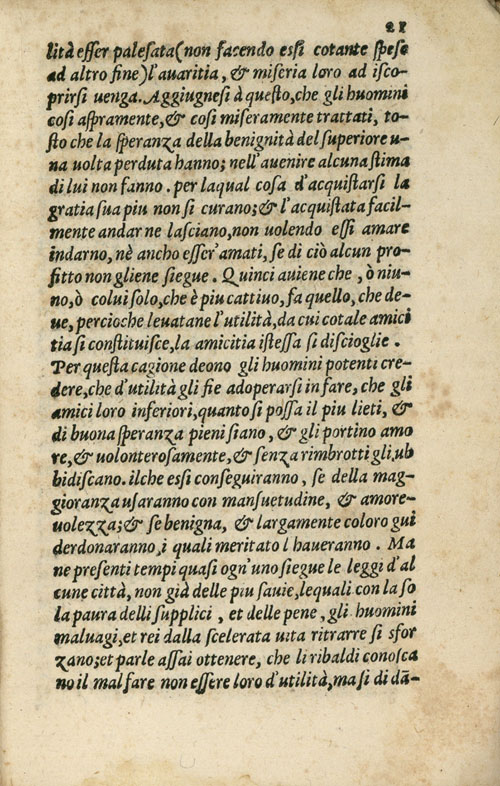 21
lità esser palesata (non facendo essi cotante spese
ad altro fine) l'avaritia, & miseria loro ad isco-
prirsi uenga. Aggiugnesi à questo, che gli huomini
cosi aspramente, & cosi miseramente trattati, to-
sto che la speranza della benignità del superiore u-
na uolta perduta hanno; nell'auenire alcuna stima
di lui non fanno. per laqual cosa d'acquistarsi la
gratia sua piu non si curano; & l'acquistata facil-
mente andarne lasciano, non uolendo essi amare
indarno, nè ancho esser'amati, se di ciò alcun pro-
fitto non gliene siegue. Quinci auiene che, ò niu-
no, ò colui solo, che è piu cattiuo, fa quello, che de-
ue, percioche leuatane l'utilità, da cui cotale amici
tia si constituisce, la amicitia istessa si discioglie.
Per questa cagione deono gli huomini potenti cre-
dere, che d'utilità gli fie adoperarsi in fare, che gli
amici loro inferiori, quanto si possa il piu lieti, &
di buona speranza pieni siano, & gli portino amo
re, & uolonterosamente, & senza rimbrotti gli ub
bidiscano. ilche essi conseguiranno, se della mag-
gioranza usaranno con mansuetudine, & amore-
uolezza; & se benigna, & largamente coloro gui
derdonaranno, i quali meritato l haueranno. Ma
ne presenti tempi quasi ogn'uno siegue le leggi d'al
cune città, non già delle piu sauie, lequali con la so
la paura delli supplici, et delle pene, gli huomini
maluagi, et rei dalla scelerata uita ritrarre si sfor
zano; et parle assai ottenere, che li ribaldi conosca
no il mal fare non essere loro d'utilità, ma si di dā-